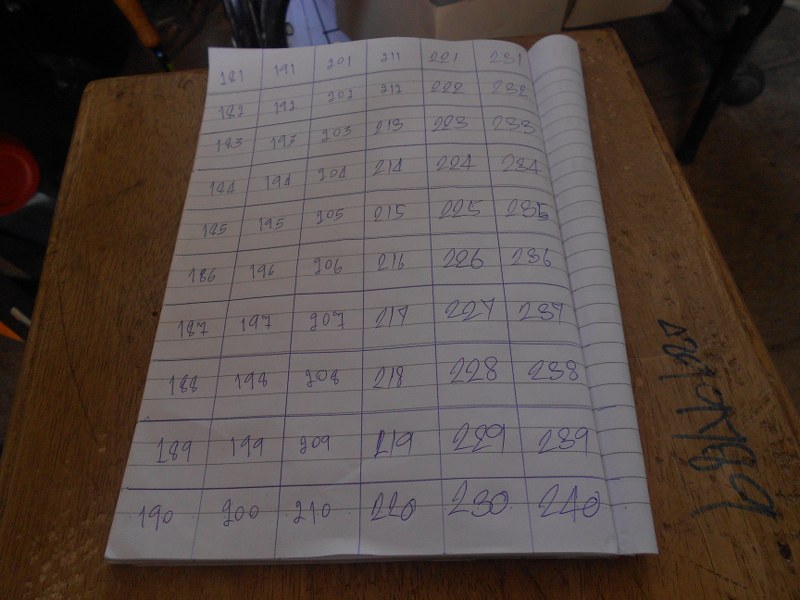 181 191 201 211 221 231
182 192 202 212 222 232
183 193 203 213 223 233
184 194 204 214 224 234
185 195 205 215 225 235
186 196 206 216 226 236
187 197 207 217 227 237
188 198 208 218 228 238
189 199 209 219 229 239
190 200 210 220 230 240